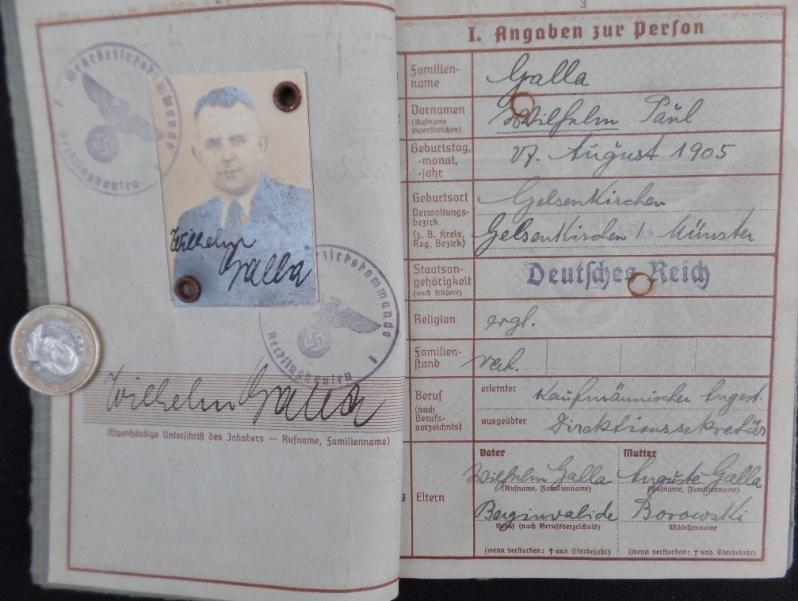 Wehrbezirkskommando
Recklinghausen
Wilhelm
Galla
Wehrbezirkskommando
Recklinghausen 1
Wilhelm Galla
(Eigenhändige Unterschrift des Inhabers — Rufname, Familienname)
3
I. Angaben zur Person
Familien-
name
Galla
Vornamen
(Rufname
unterstreichen)
Wilhelm Paul
Geburtstag,
-monat,
-jahr
17. August 1905
Geburtsort
Verwaltungs-
bezirk
(z. B. Kreis,
Reg. Bezirk)
Gelsenkirchen
Gelsenkirchen / Münster
Staatsan-
gehörigkeit
(auch frühere)
Deutsches Reich
Religion
evgl.
Familien-
stand
verh.
Beruf
(nach
Berufs-
verzeichnis)
erlernter
Kaufmännischer Angest.
ausgeübter
Direktionssekretär
Eltern
Vater
Wilhelm Galla
(Rufname, Familienname)
Berginvalide
Beruf (nach Berufsverzeichnis)
(wenn verstorben: † und Sterbejahr)
Mutter
Auguste Galla
(Rufname, Familienname)
Borowski
Mädchenname
(wenn verstorben: † und Sterbejahr)